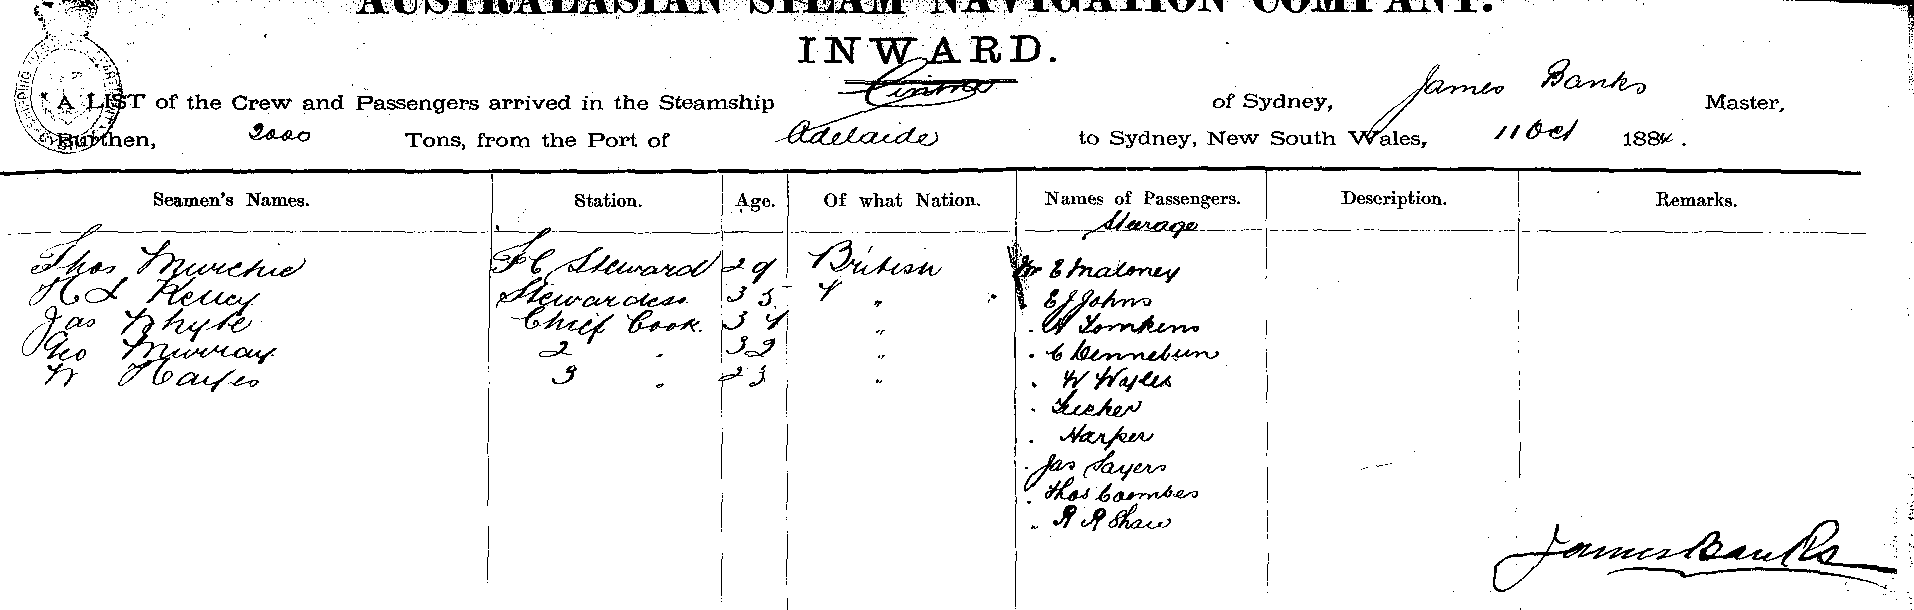 AUSTRALASIAN STEAM NAVIGATION COMPANY.
INWARD.
A LIST of the Crew and Passengers arrived in the Steamship of Sydney, James Banks Master,
Burthen, 2000 Tons, from the Port of Adelaide to Sydney, New South Wales, 11 Oct 1884.
Seamen's Names. Station. Age. Of what Nation. Names of Passengers. Description. Remarks.
Starage
Thos Murchie F C Steward 29 British Mr E Maloney
H L Kelley Stewardess 35 " " E J Johns
Jas Whyte Chief Cook. 34 " " Tomkins
Geo Murray 2 " 32 " " C Dennebun
W Hayes 3 " 23 " " W Wyles
" Tucker
" Harper
" Jas Sayers
" Thos Coombes
" R R Shaw
James Banks